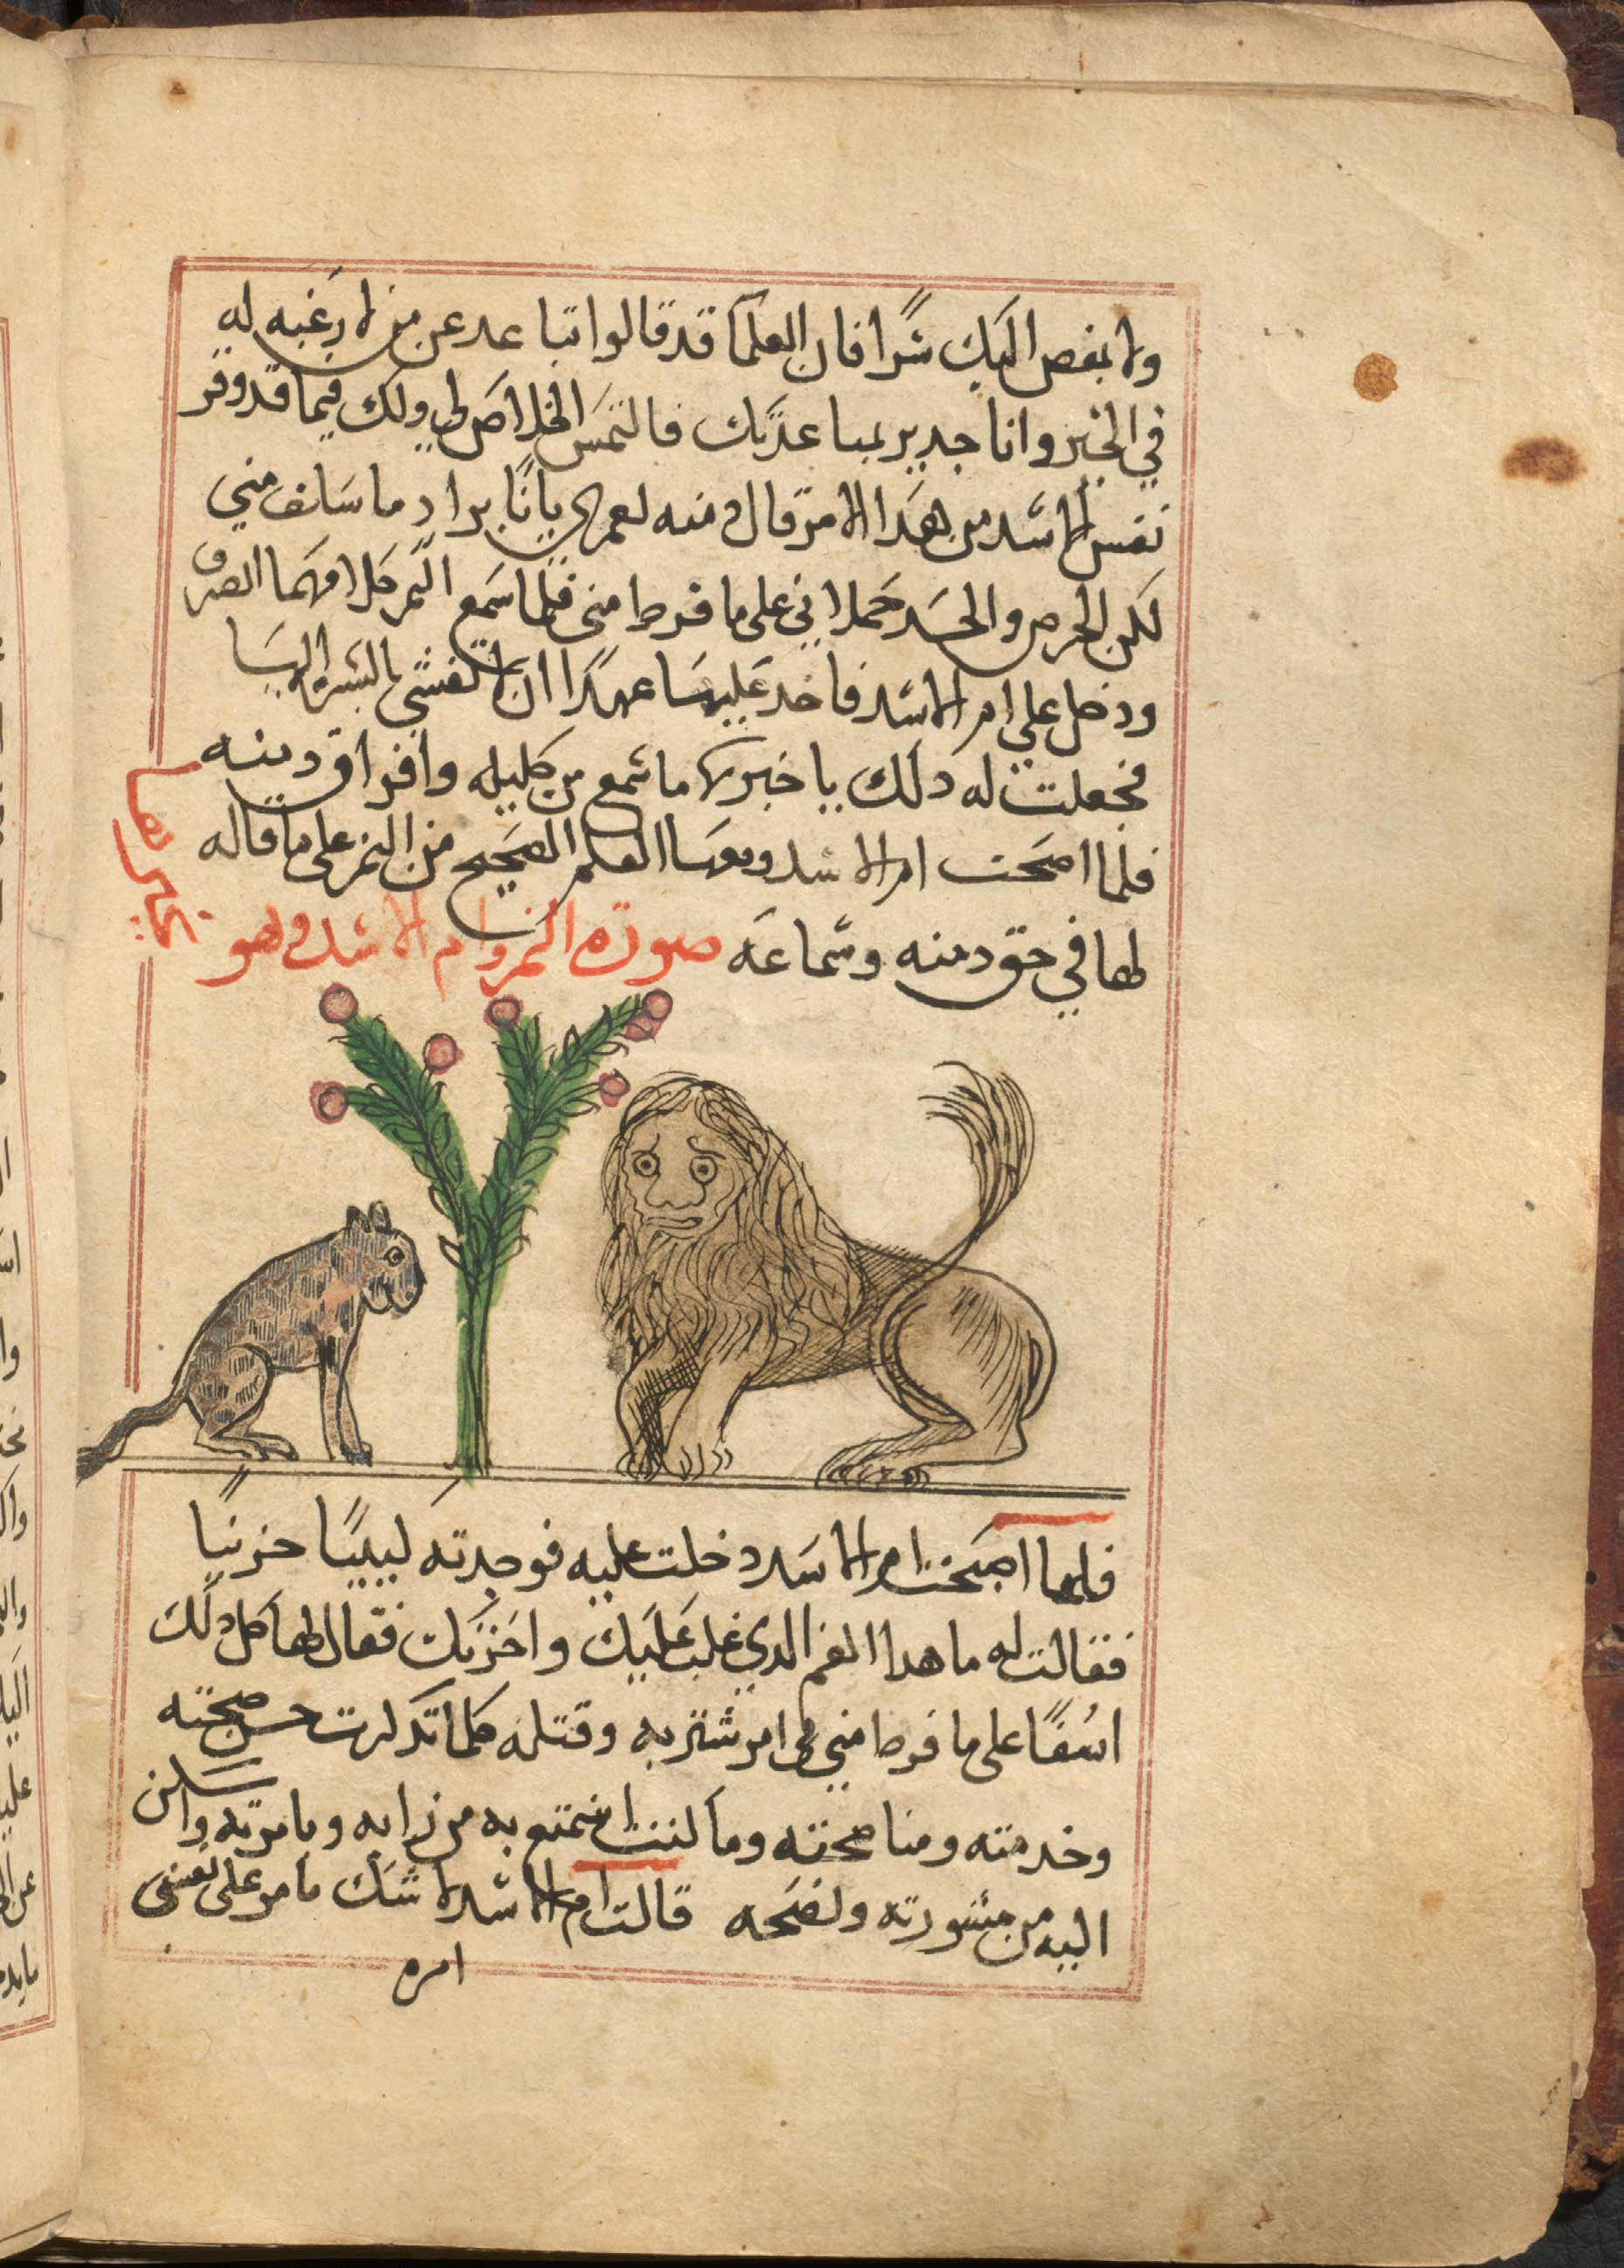 ولا بغض اليك شرًا فان العلما قد قالوا تباعد عن من لا رغبه له
في الخير وانا جدير بمباعدتك فالتمس الخلاص لي ولك فيما قد وقر
نفس الاسد من هدا الامر قال دمنه لعمري يا براد ما سلف مني
لكن الحرص والحسد حملاني على ما فرط مني فلما سمع النمر كلامهما انصرف
ودخل علي ام الاسد فاخد عليها عهدًا ان لا تفشي بالسر اليها
فجعلت له دلك ياخبرها ما سمع من كليله وافراق دمنه
فلما اصبحت ام الاسد ومعها العلم الصحيح من النمر على ما قاله
لها في حق دمنه وسماعه صورة النمر وام الاسد وهو
يخبرها
فلما اصبحت ام الاسد دخلت عليه فوجدته كييبًا حزينًا
فقالت له ما هدا الغم الدي غلب عليك واحزنك فقال لها كل دلك
اسفًا على ما فرط مني في امر شتربه وقتله كلما تدكرت حسن صحبته
وخدمته ومناصحته وما كنت انتمتع به من رايه وبامرته واسكن
اليه من مشورته ونصحه قالت ام الاسد لا شك بامر على نفسي
امره